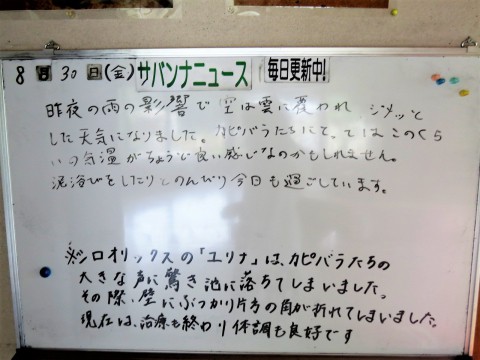 8月30日(金) サバンナニュース 毎日更新中!
昨夜の雨の影響で空は雲に覆われ ジメッと
した天気になりました。カピバラたちにとってはこのくら
いの気温がちょうど良い感じなのかもしれません。
泥浴びをしたりとのんびり今日も過ごしています。
※シロオリックスの「ユリナ」は、カピバラたちの
大きな声に驚き池に落ちてしまいました。
その際、壁にぶつかり片方の角が折れてしまいました。
現在は、治療も終わり体調も良好です